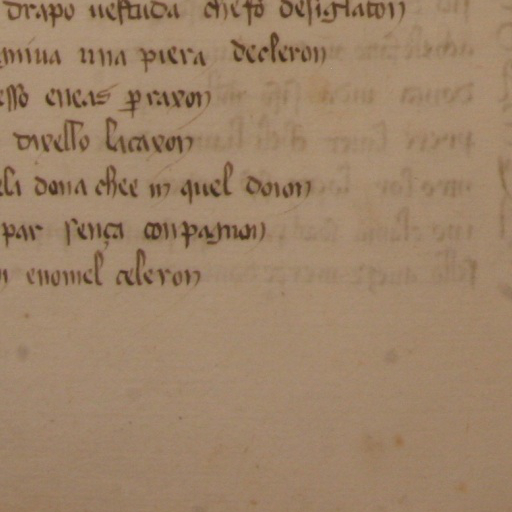 drapo uestuda che fo desiglaton
una piera decleron
esso eneas ꝑ raxon
dirello la caxon
dona chee in quel doion
par sença conpagnon
enomel celeron